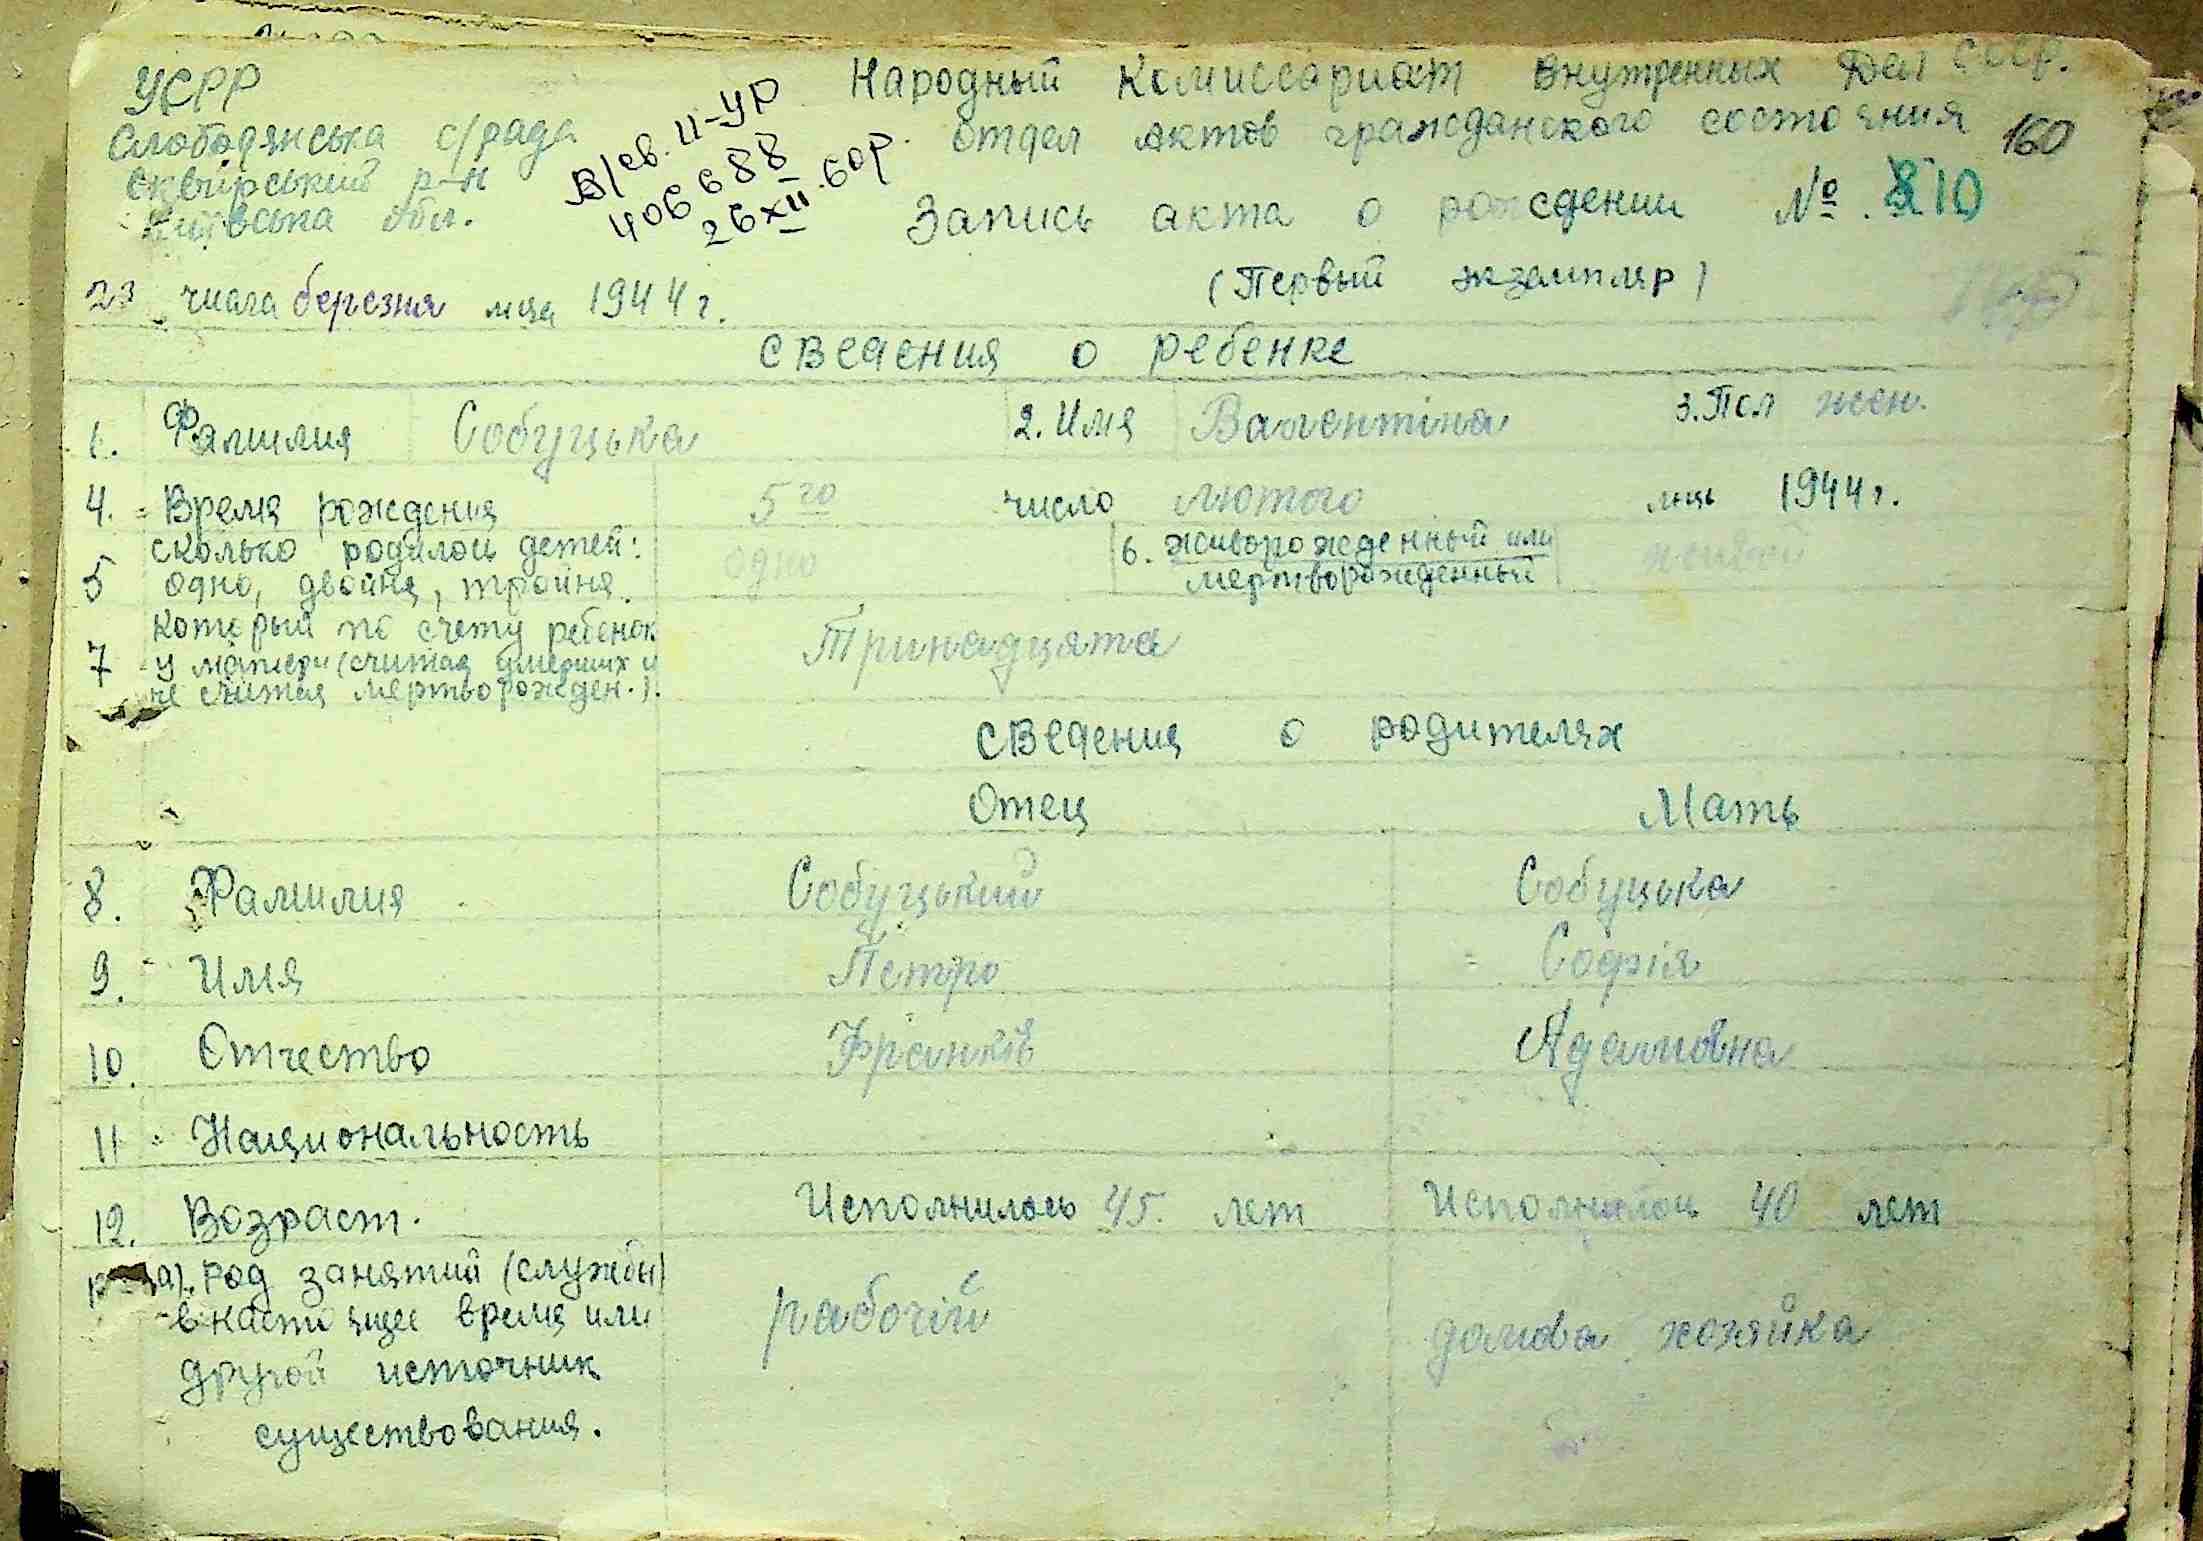 УСРР
Слободянська с/рада
Сквирський р-н
Київська обл.
В/св. II-УР
406688
26 XII.60р.
Народный Комиссариат Внутренных Дел СССР.
отдел актов гражданского состояния
160
Запись акта о рождении №. 10
(Первый экземпляр)
23 числа березня мця 1944 г.
сведения о ребенке
1. Фамилия Собуцька 2. Имя Валентіна 3. Пол жен.
4. Время рождения 5го число лютого мць 1944 г.
5 сколько родилось детей: одно, двойня, тройня. одно 6. живорожденный или мертворожденный живой
7 который по счету ребенок у матери (считая умерших и не считая мертворожден.). Тринадцята
сведения о родителях
Отец Мать
8. Фамилия Собуцький Собуцька
9. Имя Петро Софія
10. Отчество Франків Адамовна
11 Национальность
12. Возраст. Исполнилось 45. лет Исполнилось 40 лет
а). род занятий (службы) в настоящее время или другой источник существования. рабочій домова хозяйка